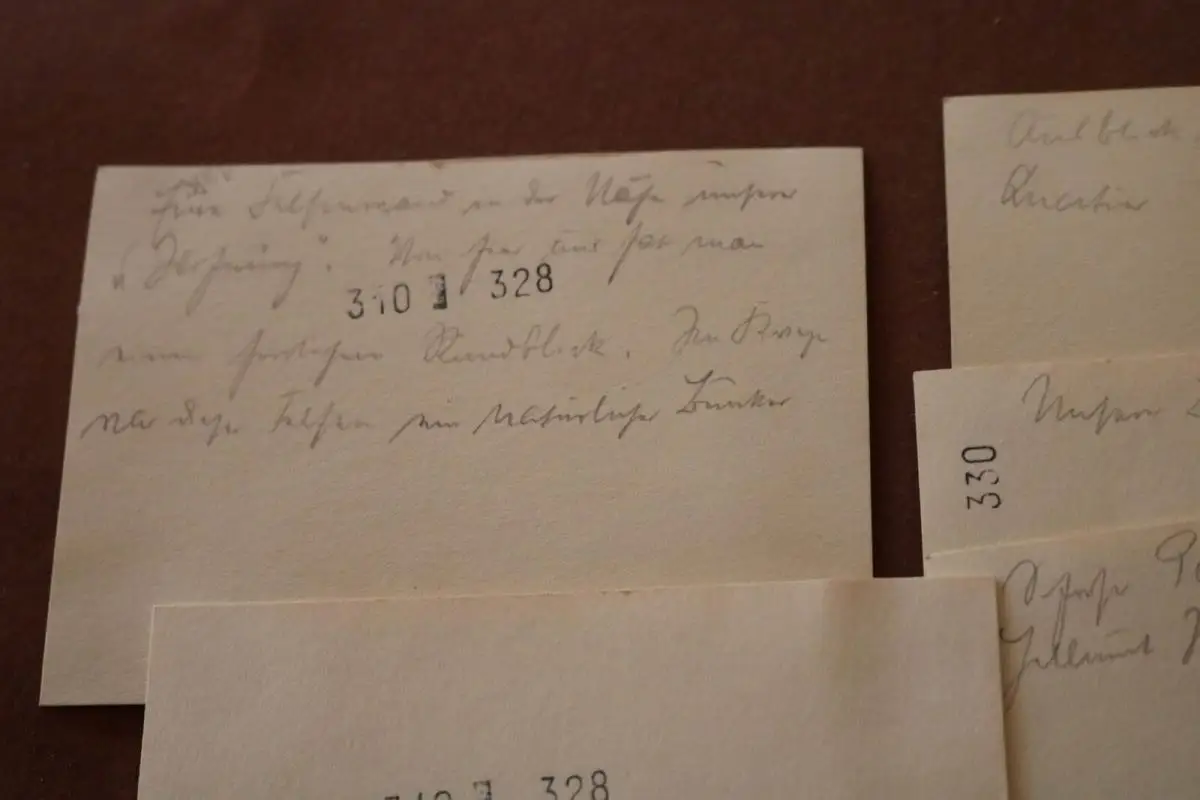 Eine Felsenwand in der Nähe unserer
Von hier aus hat man
310 328
einen herrlichen Rundblick. Im Krieg
war diese Felsen ein natürlicher Bunker
Quartier
330
Unsere
Hellmut
328